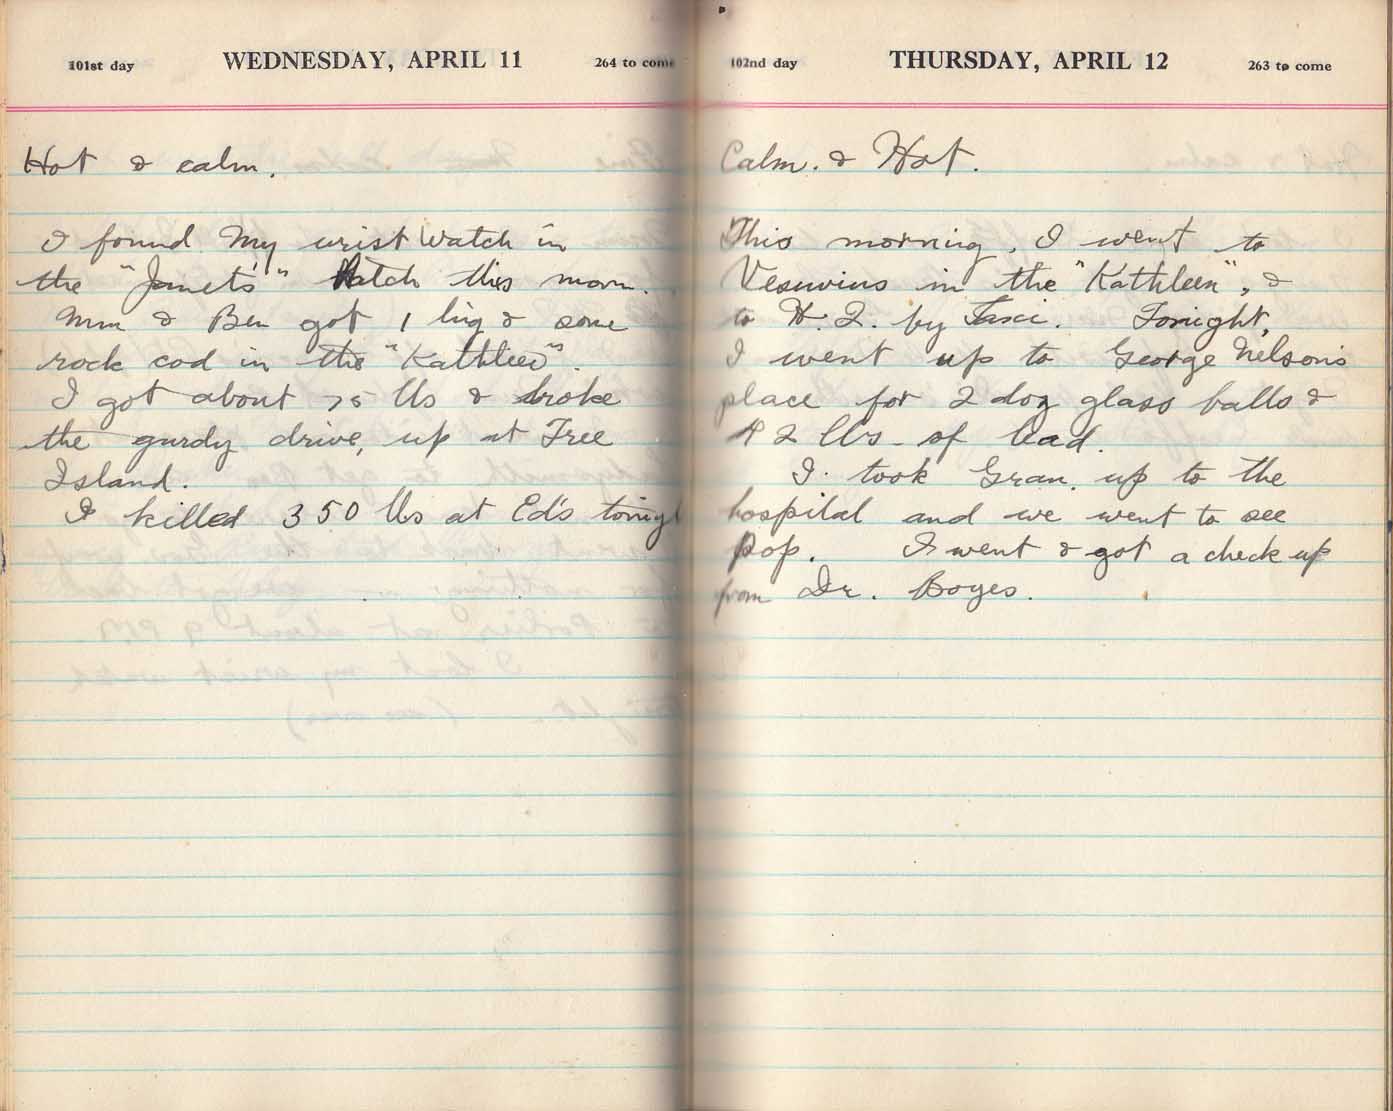 101st day WEDNESDAY, APRIL 11 264 to come
Hot & calm.
I found My wrist Watch in
the "Janet's" Hatch this morn.
Mm & Ben got 1 ling & some
rock cod in the "Kathleen".
I got about 75 lbs & broke
the gurdy drive, up at Tree
Island.
I killed 350 lbs at Ed's tonight
102nd day THURSDAY, APRIL 12 263 to come
Calm. & Hot.
This morning, I went to
Vesuvius in the "Kathleen", &
to H. Q. by Taxi. Tonight,
I went up to George Nelson's
place for 2 doz glass balls &
42 lbs. of lead.
I took Gran. up to the
hospital and we went to see
Pop. I went & got a check up
from Dr. Boyes.